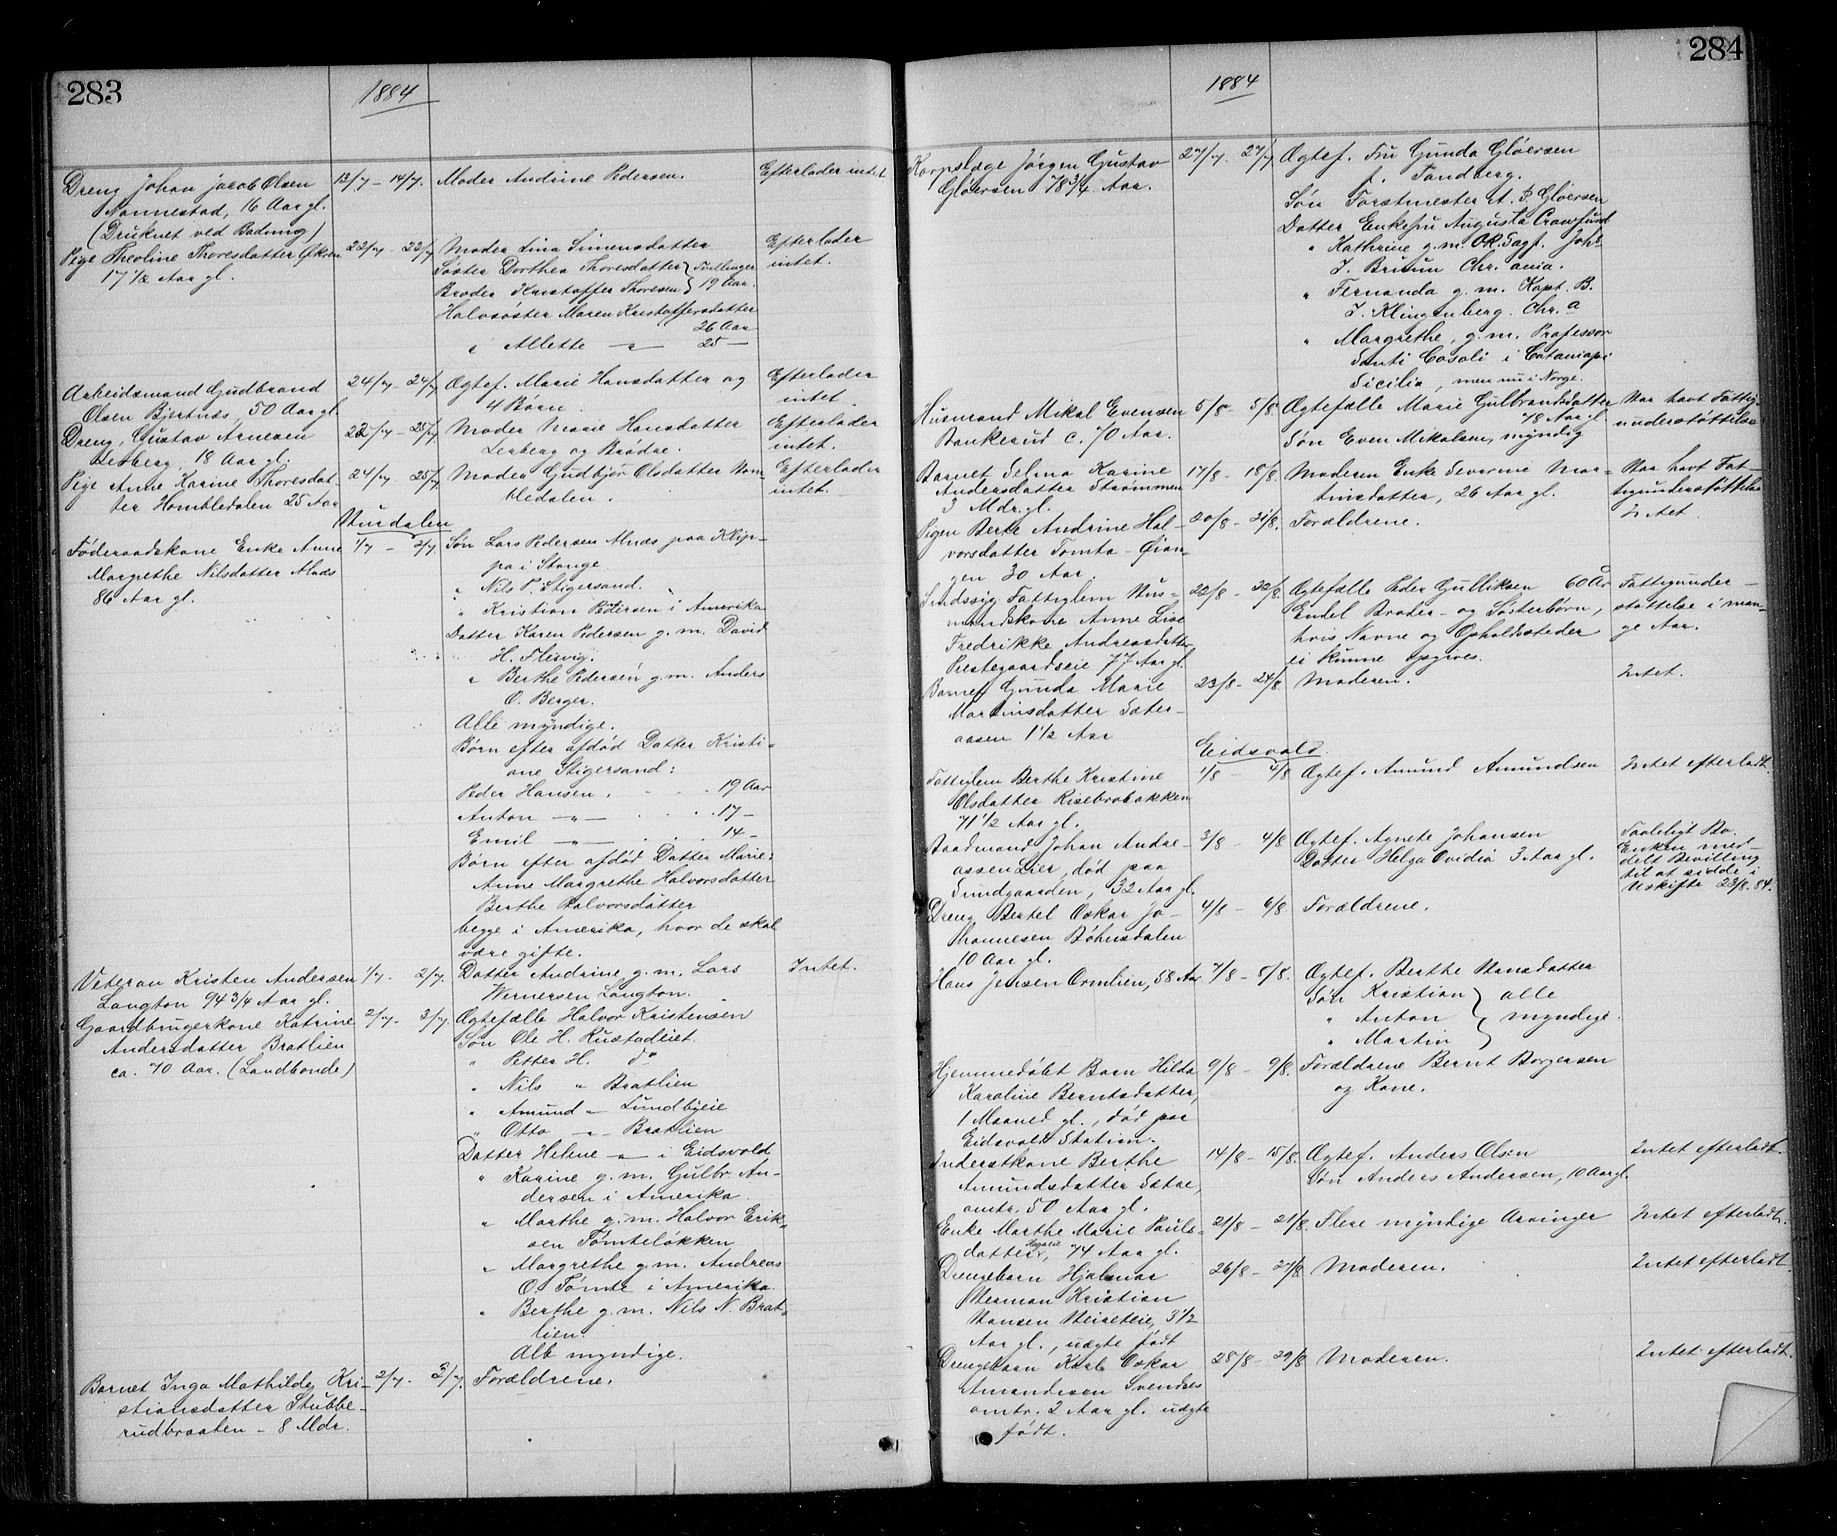 283
1884
Dreng Johan Jacob Olsen
Nannestad, 16 Aar gl.
(Druknet ved Badning)
13/7 - 14/7.
Moder Andrine Pedersen.
Efterlader intet
Pige Theoline Thoresdatter
17 1/2 Aar gl.
22/7 - 22/7
Moder Lina Simensdatter
Søster Dorthea Thoresdatter } Tvillinger
Broder Kristoffer Thoresen } 19 Aar.
Halvsøster Maren Kristoffersdatter
26 Aar
" Allette — " — 25 —
Efterlader
intet.
Arbeidsmand Gudbrand
Olsen Bjertnæs, 50 Aar gl.
24/7 - 24/7
Ægtef. Marie Hansdatter og
4 Børn.
Efterlader
intet.
Dreng, Gustav Arnesen
Lerberg, 18 Aar gl.
25/7 - 25/7
Moder Marie Hansdatter
Lerberg og Brødre.
Efterlader
intet.
Pige Anne Karine Thoresdat-
ter Hombledalen 25 Aar
24/7 - 25/7
Moder Gudbjør Olsdatter Hom-
bledalen.
Efterlader
intet.
Hurdalen
Føderaadskone Enke Anne
Margrethe Nilsdatter Alnæs
86 Aar gl.
1/7 - 2/7
Søn Lars Pedersen Alnæs paa Klip-
pa i Stange.
" Nils P. Stigersand.
" Kristian Pedersen i Amerika
Datter Karen Pedersen g.m. David
H. Flesvig.
" Berthe Pedersen g.m. Anders
O. Berger.
Alle myndige.
Børn efter afdød Datter Kristi-
ane Stigersand:
Peder Hansen . . . . 19 Aar
Anton — " — . . . . 17 —
Emil — " — . . . . 14 —
Børn efter afdød Datter Marie:
Anne Margrethe Halvorsdatter
Berthe Halvorsdatter
begge i Amerika, hvor de skal
være gifte.
Veteran Kristen Andersen
Langton 94 3/4 Aar gl.
1/7. 2/7.
Datter Andrine g.m. Lars
Wernersen Langton.
Intet.
Gaardbrugerkone Katrine
Andersdatter Bratlien
ca. 70 Aar. (Landbonde)
2/7 - 3/7.
Ægtefælle Halvor Kristensen
Søn Ole H. Rustadeiet
" Petter H. do
" Nils " Bratlien
" Amund " Lundbyeie
" Otto — " — Bratlien
Datter Helene — " — i Eidsvold
" Karine g.m. Gulbr. An-
dersen i Amerika.
" Marthe g.m. Halvor Erik-
sen Tømteløkken
" Margrethe g.m. Andreas
O. Tømte i Amerika.
" Berthe g.m. Nils N. Brat-
lien.
Alle myndige.
Barnet Inga Mathilde Kri-
stiansdatter Stubbe-
rudbraaten - 8 Mdr.
2/7. 3/7.
Forældrene.
284
1884
Korpslæge Jørgen Gustav
Gløersen 78 3/4 Aar.
27/7. 27/7
Ægtef. Fru Gunda Gløersen
f. Tandberg.
Søn Forstmester A. T. Gløersen
Datter Enkefru Augusta Crawfurd
" Kathrine g.m. O.R. Sagf. Johs
J. Bruun Chr.ania.
" Fernanda g.m. Kapt. B.
J. Klingenberg. Chr.a
" Margrethe, g.m. Professor
Santi Cosoli i Catania paa
Sicilia, men nu i Norge.
Husmand Mikal Evensen
Bankerud c. 70 Aar.
5/8 - 5/8
Ægtefælle Marie Gulbrandsdatter
78 Aar gl.
Søn Even Mikalsen, myndig
Har havt Fattig-
understøttelse
Barnet Selma Karine
Andersdatter Strømmen
3 Mdr. gl.
17/8 - 18/8.
Moderen Enke Severine Mar-
tinsdatter, 26 Aar gl.
Har havt Fat-
tigunderstøttelse
Pigen Berte Andrine Hal-
vorsdatter Tomta - Øian-
gen 30 Aar.
20/8 - 21/8.
Forældrene.
Intet.
Sindssyg Fattiglem Hus-
mandskone Anne Lise
Fredrikke Andreasdatter
Prestegaardseie 77 Aar gl.
22/8 - 22/8.
Ægtefælle Peder Gulliksen 60 År
Endel Broder- og Søsterbørn,
hvis Navne og Opholdssteder
ei kunne opgives.
Fattigunder-
støttelse i man-
ge Aar.
Barnet Gunda Marie
Martinsdatter Sæter-
aasen 1 1/2 Aar
23/8 - 24/8.
Moderen.
Intet.
Eidsvold.
Fattiglem Berthe Kristine
Olsdatter Risebrobakken
71 1/2 Aar gl.
1/8 - 4/8
Ægtef. Amund Amundsen
Intet efterladt.
Baadmand Johan Andre-
assen Lier, død paa
Sundgaarden, 32 Aar gl.
3/8 - 4/8
Ægtef. Agnete Johansen
Datter Helga Ovidia 3 Aar gl.
Taaleligt Bo.
Enken med-
delt Bevilling
til at sidde i
Uskifte 23/8. 84.
Dreng Bertel Oskar Jo-
hannesen Bøhnsdalen
10 Aar gl.
4/8 - 6/8
Forældrene.
Hans Jensen Ormlien, 58 Aar
7/8 - 8/8.
Ægtef. Berthe Hansdatter
Søn Kristian } alle
" Anton } myndige.
" Martin }
Hjemmedøbt Barn Hilda
Karoline Berntsdatter,
1 Maaned gl., død paa
Eidsvold Station.
9/8 - 9/8.
Forældrene Bernt Borgersen
og Kone.
Inderstkone Berthe
Amundsdatter Sætre,
omtr. 50 Aar gl.
14/8 - 15/8.
Ægtef. Anders Olsen
Søn Anders Andersen, 10 Aar gl.
Intet efterladt.
Enke Marthe Marie Pauls-
datter, 74 Aar gl.
21/8 - 21/8
Flere myndige Arvinger
Intet efterladt.
Drengebarn Hjalmar
Herman Kristian
Hansen, 3 1/2
Aar gl., uægte født
26/8 - 27/8
Moderen.
Intet efterladt.
Drengebarn Karl Oskar
Amandisen Svendsen
omtr. 2 Aar gl. uægte
født.
28/8 - 29/8
Moderen.
Intet efterladt.